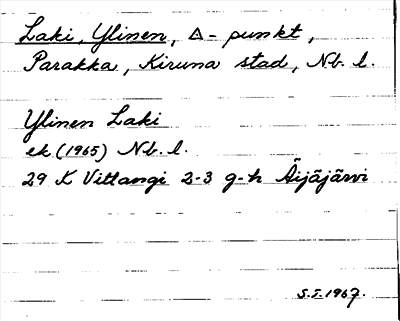 Laki, Ylinen, Δ - punkt,
Parakka, Kiruna stad, Nb. l.
Ylinen Laki
ek (1965) Nb. l.
29 K Vittangi 2-3 g-h Äijäjärvi
5.I.1967.